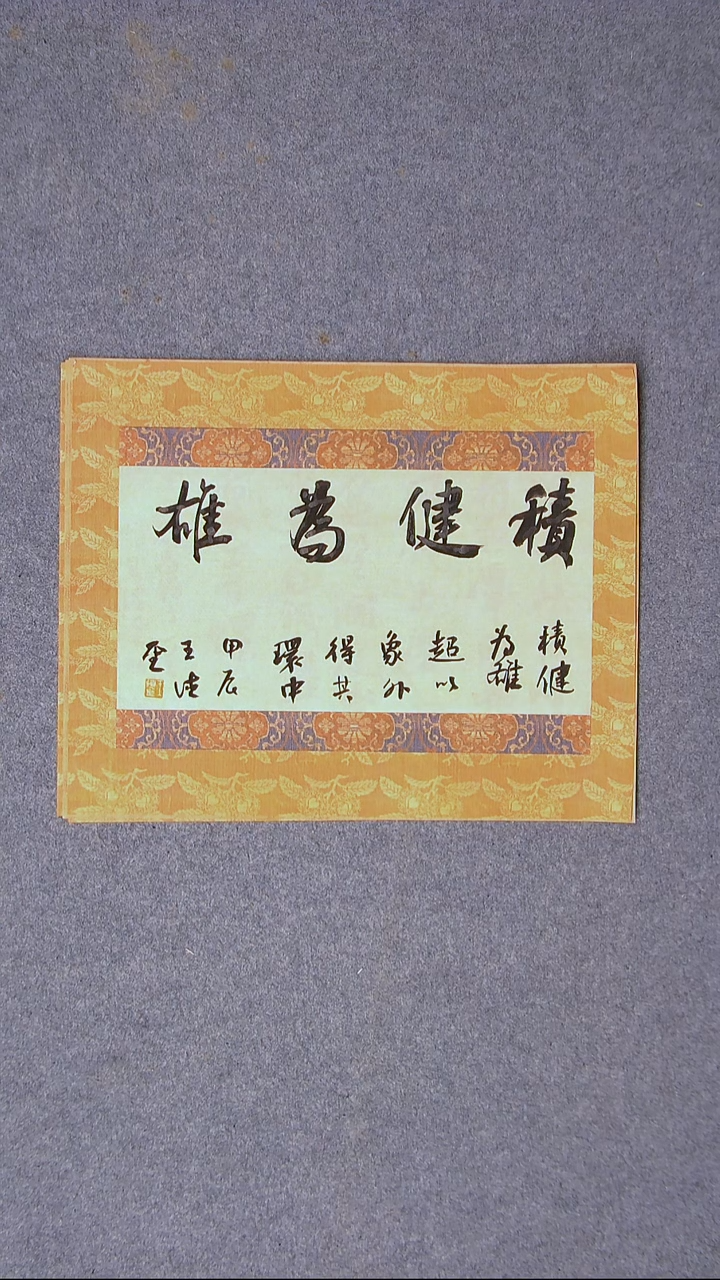 積健為雄
積健
为雄
超以
象外
得其
環中
甲辰
王